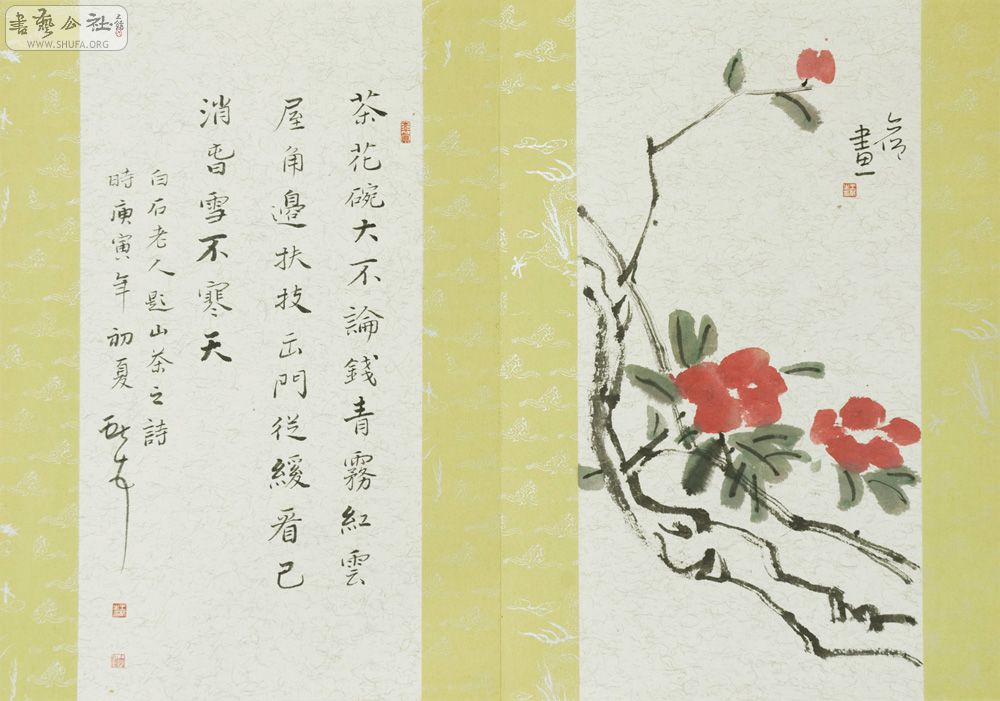 書藝公社
WWW.SHUFA.ORG
茶花碗大不論錢青霧紅雲
屋角邊扶技出門從緩看已
消香雪不寒天
白石老人題山茶之詩
時庚寅年初夏
畫